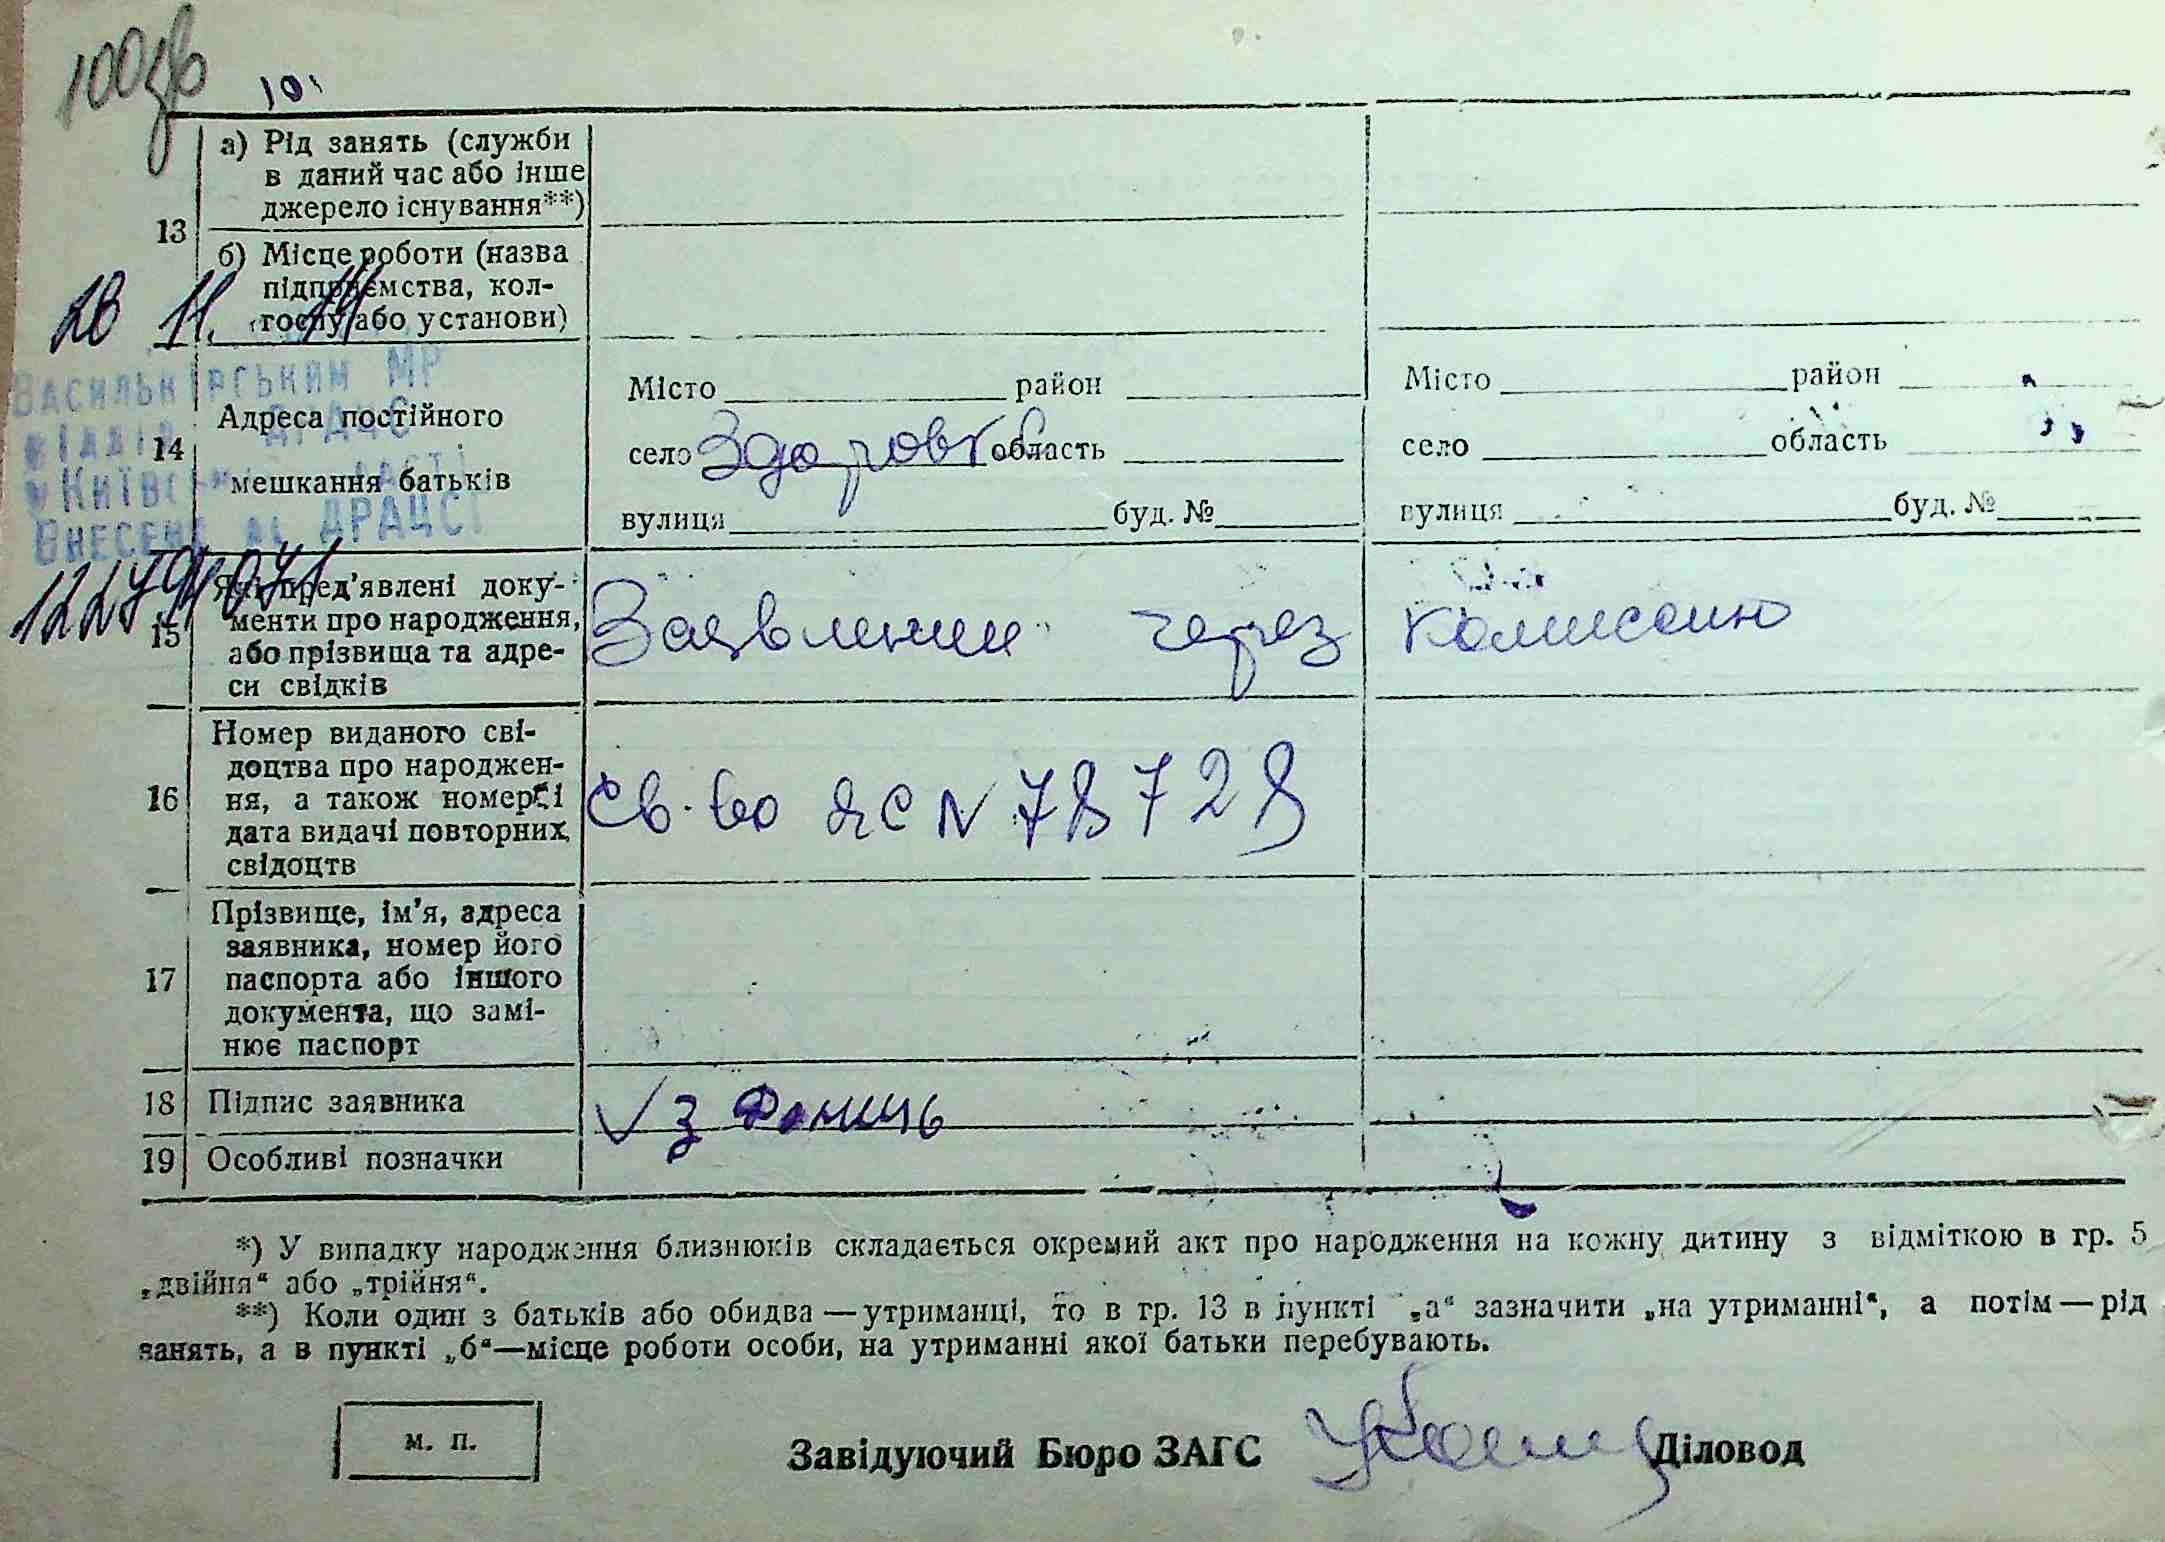 100зв
10
13
а) Рід занять (служби
в даний час або інше
джерело існування**)
б) Місце роботи (назва
підприємства, кол-
госпу або установи)
28 11. 14
Васильківським МР
ДРАЦС
Внесена ДРАЦСГ
14
Адреса постійного
мешкання батьків
Місто район
село Здоровк область
вулиця буд. №
Місто район
село область
вулиця буд. №
15
Які пред'явлені доку-
менти про народження,
або прізвища та адре-
си свідків
Заявлении через комиссию
16
Номер виданого сві-
доцтва про народжен-
ня, а також номер і
дата видачі повторних
свідоцтв
Св-во ЯС N 78728
17
Прізвище, ім'я, адреса
заявника, номер його
паспорта або іншого
документа, що замі-
нює паспорт
18
Підпис заявника
19
Особливі позначки
*) У випадку народження близнюків складається окремий акт про народження на кожну дитину з відміткою в гр. 5
„двійня“ або „трійня“.
**) Коли один з батьків або обидва—утриманці, то в гр. 13 в пункті „а“ зазначити „на утриманні“, а потім—рід
занять, а в пункті „б“—місце роботи особи, на утриманні якої батьки перебувають.
м. п.
Завідуючий Бюро ЗАГС
Діловод